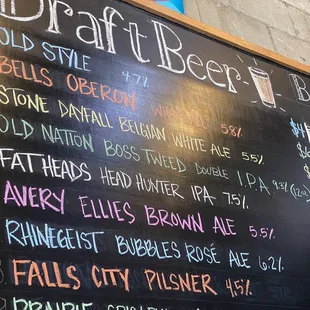 Draft Beer
OLD STYLE 4.7%
BELLS OBERON 5.8%
STONE DAYFALL BELGIAN WHITE ALE 5.5%
OLD NATION BOSS TWEED DOUBLE I.P.A 9.3%
FAT HEADS HEAD HUNTER IPA 7.5%
AVERY ELLIES BROWN ALE 5.5%
RHINEGEIST BUBBLES ROSÉ ALE 6.2%
FALLS CITY PILSNER 4.5%
PRAIRIE